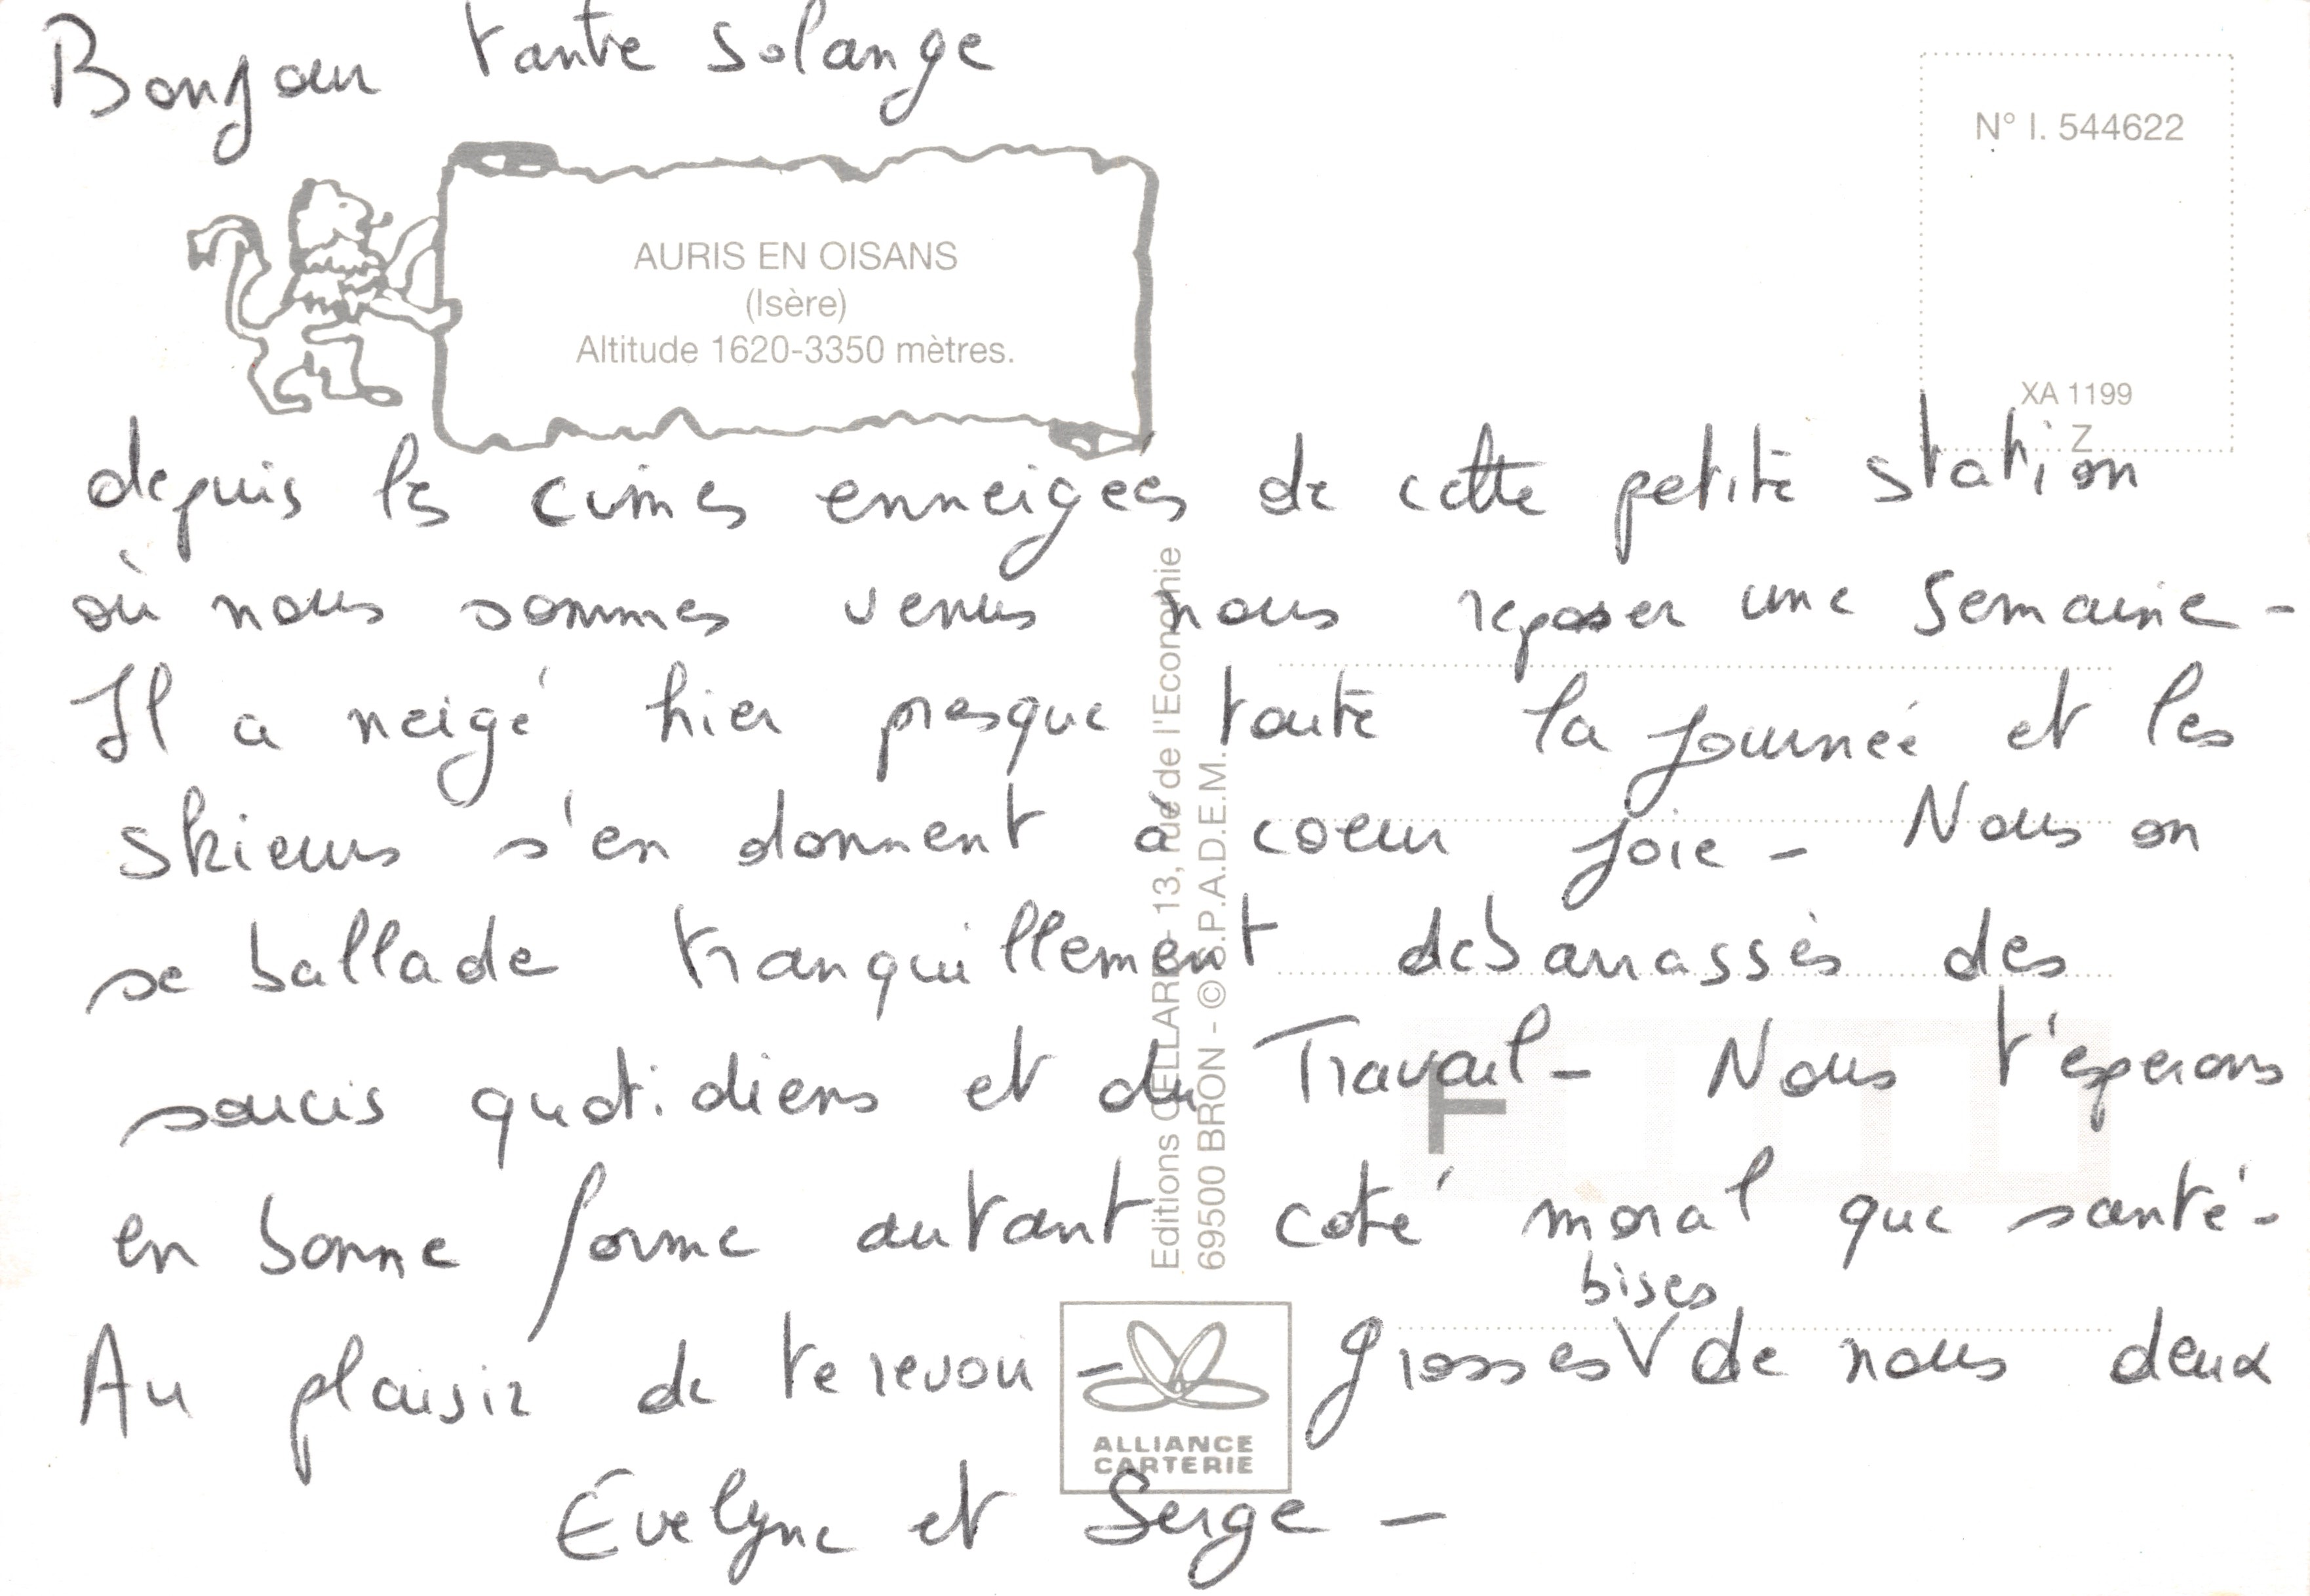 Bonjour tante Solange
N° I. 544622
AURIS EN OISANS
(Isère)
Altitude 1620-3350 mètres.
XA 1199
Z
depuis les cimes enneigées de cette petite station
où nous sommes venus nous reposer une semaine -
Il a neigé hier presque toute la journée et les
skieurs s'en donnent à coeur joie - Nous on
se ballade tranquillement débarrassés des
soucis quotidiens et du Travail - Nous t'espérons
en bonne forme autant coté moral que santé -
bises
Au plaisir de te revoir - grosses V de nous deux
Evelyne et Serge -
Editions CELLARD - 13, rue de l'Economie
69500 BRON - © S.P.A.D.E.M.
T
ALLIANCE
CARTERIE